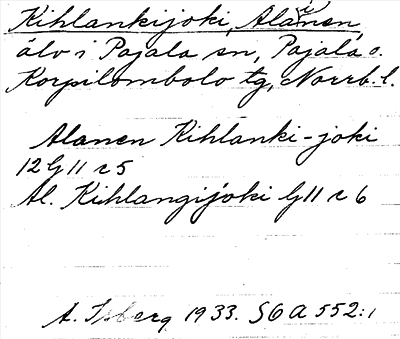 Kihlankijoki, Alanen,
älv i Pajala sn, Pajala o.
Korpilombolo tg, Norrb. l.
Alanen Kihlanki-joki
12 G 11 r 5
Al. Kihlangijoki G 11 r 6
A. 1933. S 6 A 552:1